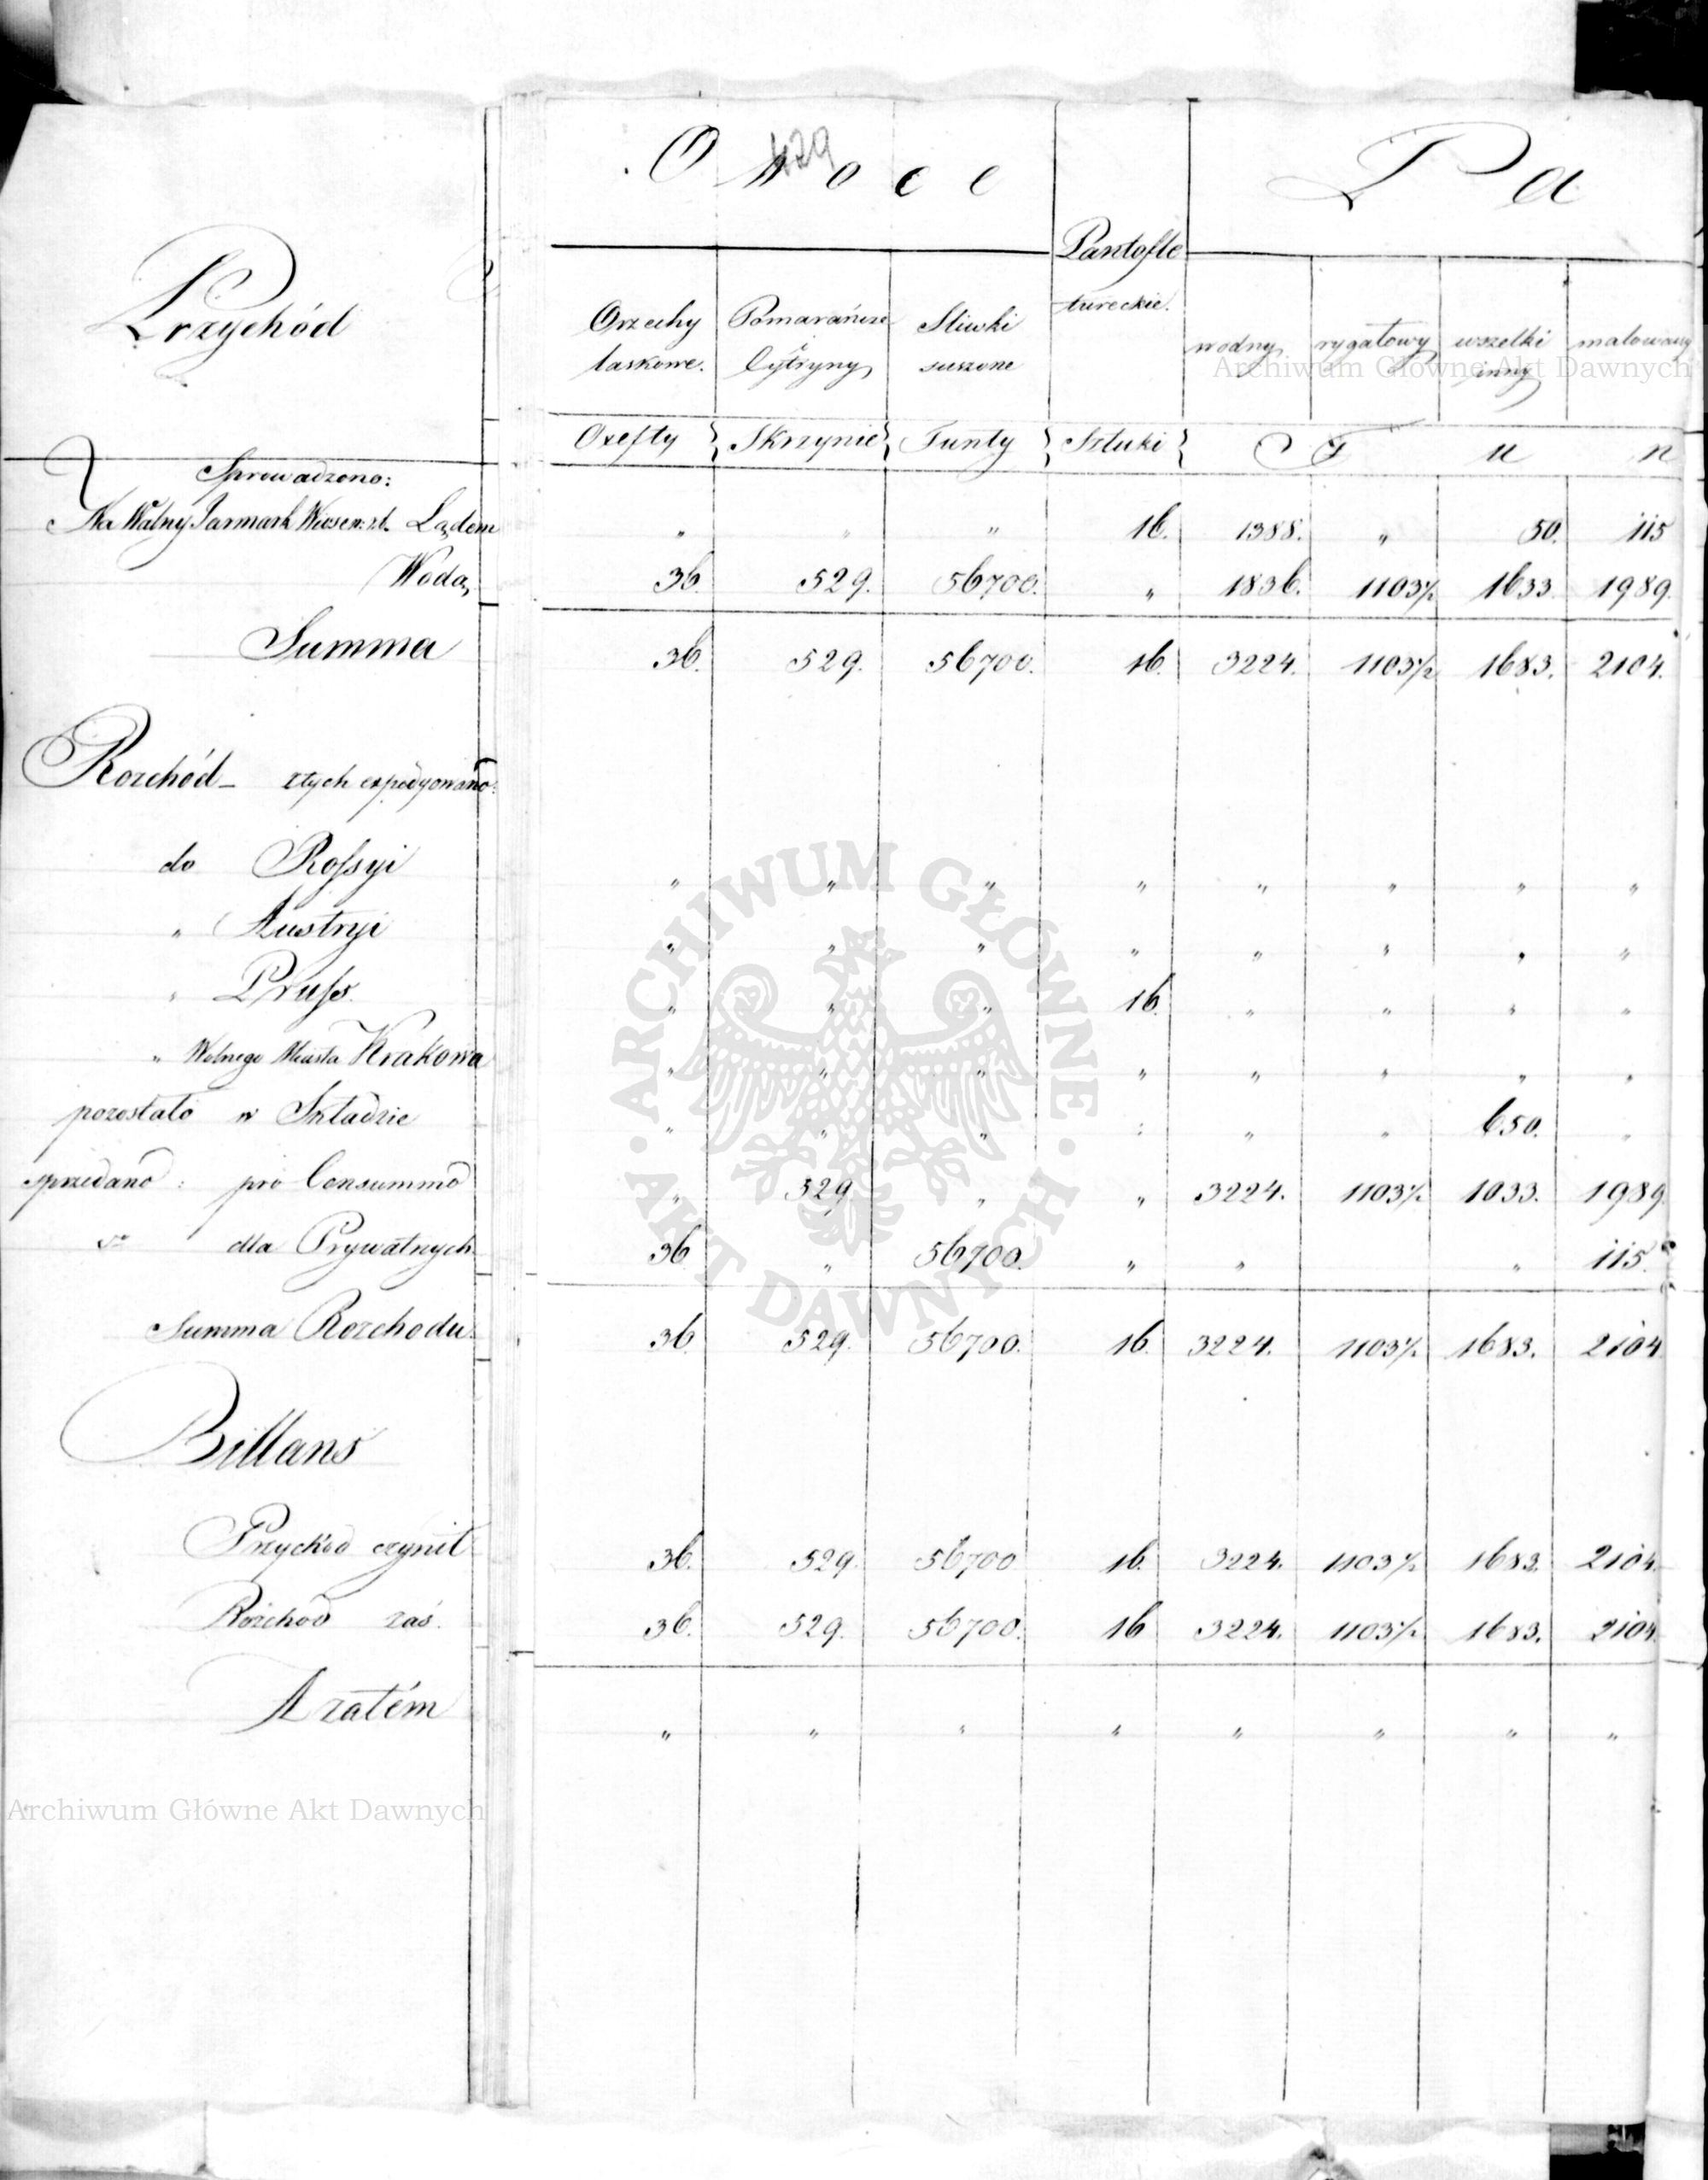 429
Owoce Pa
Pantofle
Przychód Orzechy Pomarańcze Sliwki tureckie. wodny rygatowy wszelki malowany
laskowe. Cytryny suszone inny
Archiwum Główne Akt Dawnych
Oxefty Skrzynie Funty Sztuki F u n
Sprowadzono:
Na Walny Jarmark Wiosen: zł. Lądem " " " 16. 1388. " 50. 115
Wodą 36. 529. 56700. " 1836. 1103½ 1633. 1989.
Summa 36. 529. 56700. 16. 3224. 1103½ 1683. 2104.
Rozchód – z tych expedyowano:
do Rossyi " " " " " " " "
" Austryi " " " " " " " "
" Pruss. " " " 16. " " " "
" Wolnego Miasta Krakowa " " " " " " " "
pozostało w Składzie " " " " " " 650. "
sprzedano: pro Consummo " 529 " " 3224. 1103½ 1033. 1989
dla Prywatnych 36 " 56700. " " " 115.
Summa Rozchodu 36. 529. 56700. 16. 3224. 1103½ 1683. 2104
Billans
Przychód czynił 36. 529. 56700 16. 3224. 1103½ 1683. 2104.
Rozchód zaś. 36. 529. 56700. 16 3224. 1103½ 1683. 2104.
A zatém " " " " " " " "
Archiwum Główne Akt Dawnych
ARCHIWUM GŁÓWNE
AKT DAWNYCH